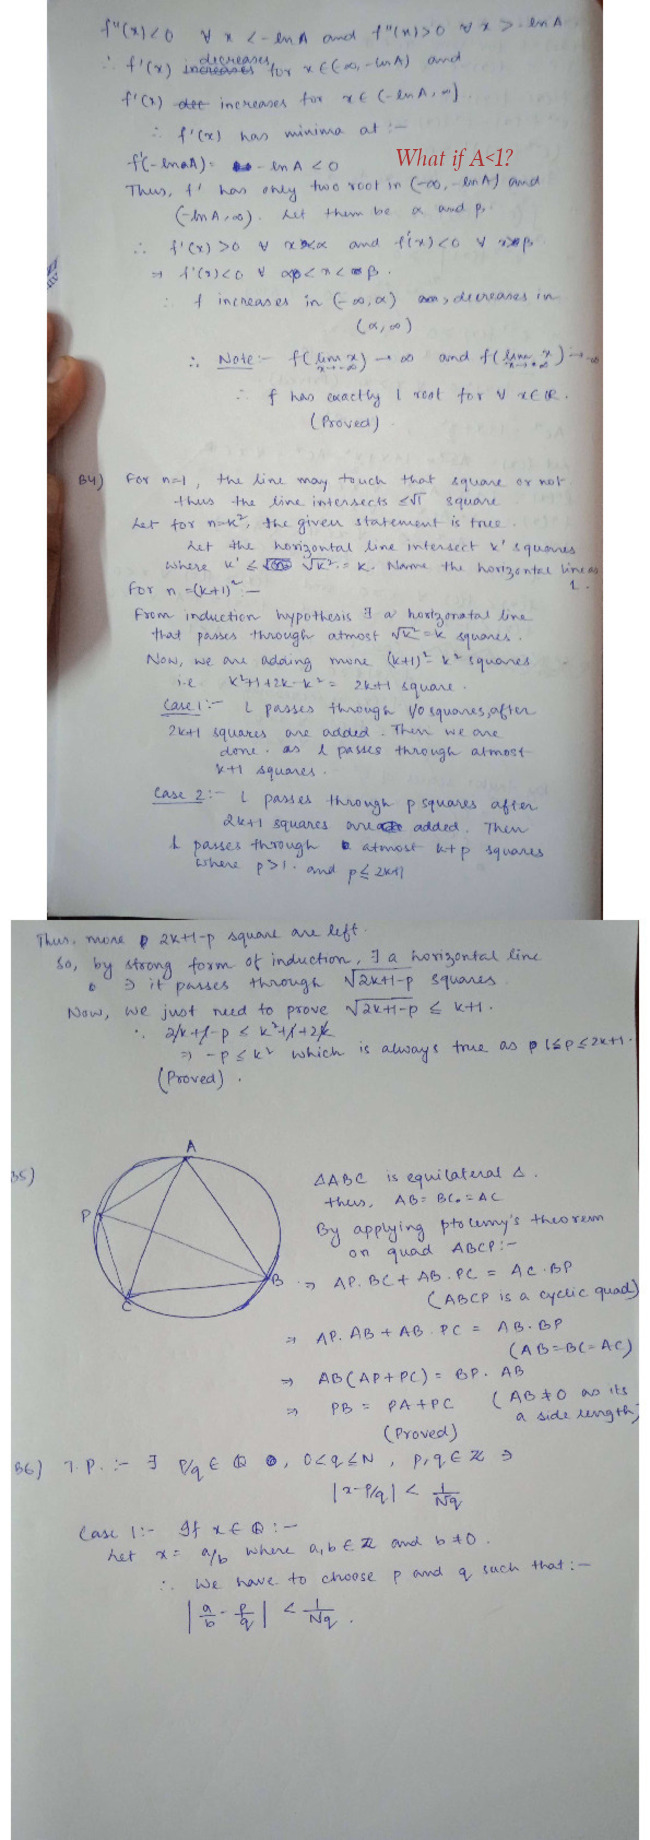 f''(x)<0 ∀ x <-lnA and f''(x)>0 ∀ x > -lnA
decreases
∴ f'(x) increases for x∈(∞,-lnA) and
f'(x) dec increases for x∈ (-lnA,∞).
∴ f'(x) has minima at :-
f'(-lnA)= -lnA<0
What if A<1?
Thus, f' has only two root in (-∞,-lnA) and
(-lnA,∞). Let them be α and β,
∴ f'(x)>0 ∀ x<α and f'(x)<0 ∀ x>β
⇒ f'(x)<0 ∀ α<x<β.
∴ f increases in (-∞,α) decreases in
(α,∞)
∴ Note:- f(lim x→-∞ x)→∞ and f(lim x→∞ x)→-∞
∴ f has exactly 1 root for ∀ x∈R.
(Proved)
B4) For n=1, the line may touch that square or not
thus the line intersects ≤√1 square
Let for n=k², the given statement is true.
Let the horizontal line intersect k' squares
where k' ≤ √k² = k. Name the horizontal line as
l.
For n=(k+1)² :-
From induction hypothesis ∃ a horizonatal line
that passes through atmost √k²=k squares.
Now, we are adding more (k+1)²-k² squares
i.e k²+1+2k-k² = 2k+1 square.
Case 1:- L passes through 1/0 squares, after
2k+1 squares are added. Then we are
done. as l passes through atmost
k+1 squares.
Case 2:- L passes through p squares after
2k+1 squares are added. Then
L passes through atmost k+p squares
where p>1. and p≤2k+1
Thus, more 2k+1-p square are left.
So, by strong form of induction, ∃ a horizontal line
∋ it passes through √2k+1-p squares.
Now, we just need to prove √2k+1-p ≤ k+1.
∴ 2k+1-p ≤ k²+1+2k
⇒ -p≤k² which is always true as 1≤p≤2k+1.
(Proved).
B5)
A
P
B
C
ΔABC is equilateral Δ.
thus, AB=BC=AC
By applying ptolemy's theorem
on quad ABCP:-
⇒ AP.BC+AB.PC = AC.BP
(ABCP is a cyclic quad)
⇒ AP.AB+AB.PC = AB.BP
(AB=BC=AC)
⇒ AB(AP+PC)= BP.AB
⇒ PB = PA+PC (AB≠0 as its
a side length)
(Proved)
B6) T.P. :- ∃ p/q ∈ Q, 0<q≤N, p,q∈Z ∋
|x-p/q| < 1/Nq
Case 1:- If x∈Q :-
Let x= a/b where a,b∈Z and b≠0.
∴ We have to choose p and q such that:-
|a/b - p/q| < 1/Nq.